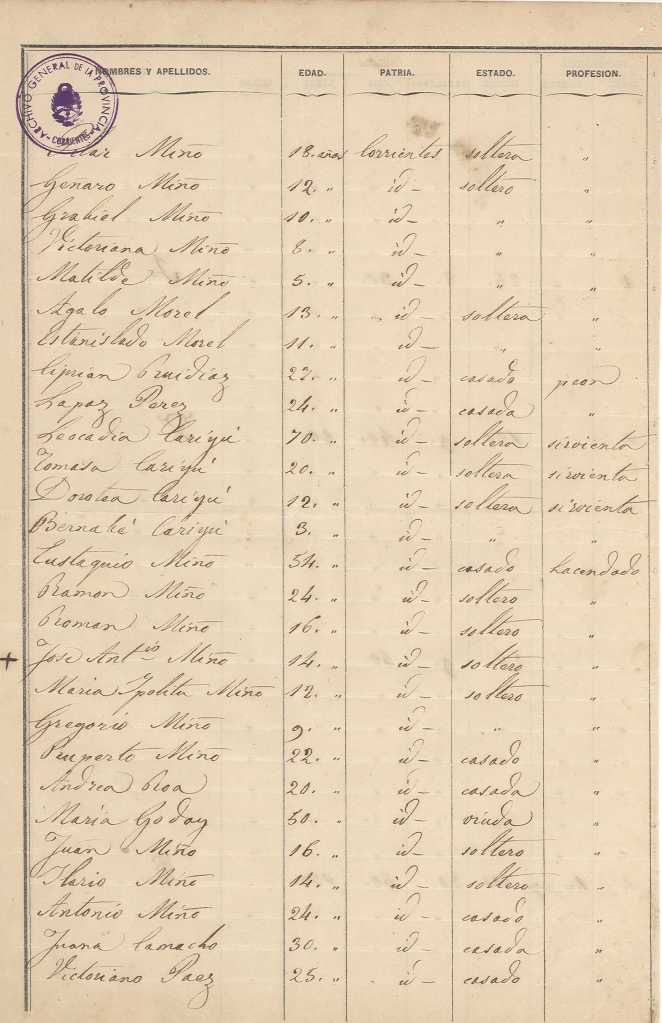 ARCHIVO GENERAL DE LA PROVINCIA
CORRIENTES
NOMBRES Y APELLIDOS. EDAD. PATRIA. ESTADO. PROFESION.
Miño 18. años Corrientes soltera "
Genaro Miño 12. " id– soltero "
Grabiel Miño 10. " id– " "
Victoriana Miño 8. " id– " "
Matilde Miño 5. " id– " "
Agalo Morel 13. " id– soltera "
Estanislado Morel 11. " id– " "
Ciprian Ruidiaz 27. " id– casado peon
Lapaz Perez 24. " id– casada "
Leocadia Cariyú 70. " id– soltera sirvienta
Tomasa Cariyú 20. " id– soltera sirvienta
Dorotea Cariyú 12. " id– soltera sirvienta
Bernabé Cariyú 3. " id– " "
Eustaquio Miño 54. " id– casado hacendado
Ramon Miño 24. " id– soltero "
Roman Miño 16. " id– soltero "
+ Jose Ant.io Miño 14. " id– soltero "
Maria Ypolita Miño 12. " id– soltero "
Gregorio Miño 9. " id– " "
Ruperto Miño 22. " id– casado "
Andrea Roa 20. " id– casada "
Maria Goday 50. " id– viuda "
Juan Miño 16. " id– soltero "
Ilario Miño 14. " id– soltero "
Antonio Miño 24. " id– casado "
Juana Camacho 30. " id– casada "
Victoriano Paez 25. " id– casado "